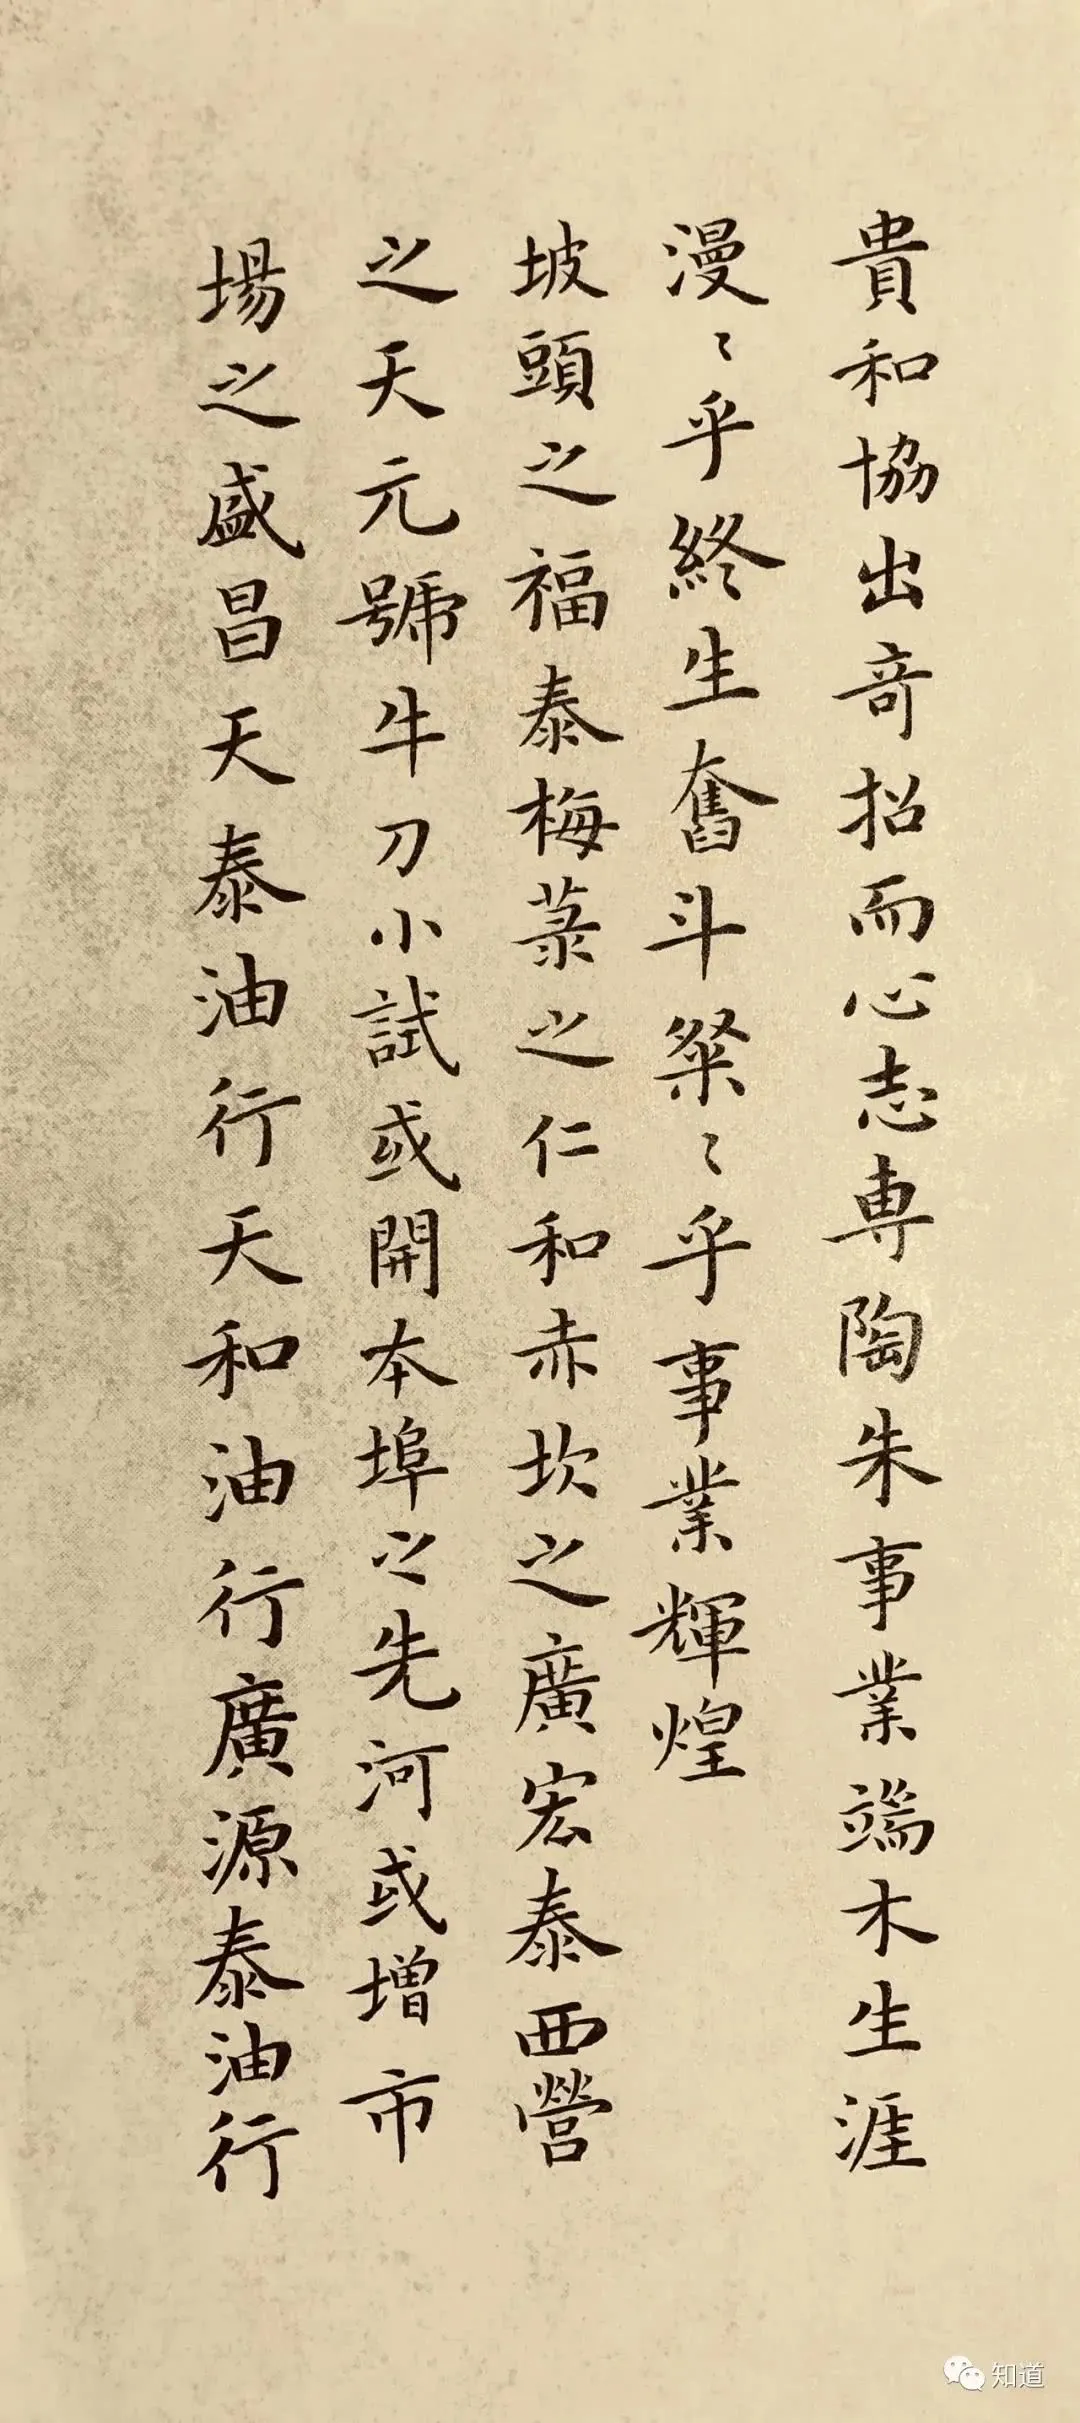 貴和協出奇招而心志専陶朱事業端木生涯
漫〻乎終生奮斗粲〻乎事業輝煌
坡頭之福泰梅菉之仁和赤坎之廣宏泰西營
之天元號牛刀小試或開本埠之先河或增市
場之盛昌天泰油行天和油行廣源泰油行
知道